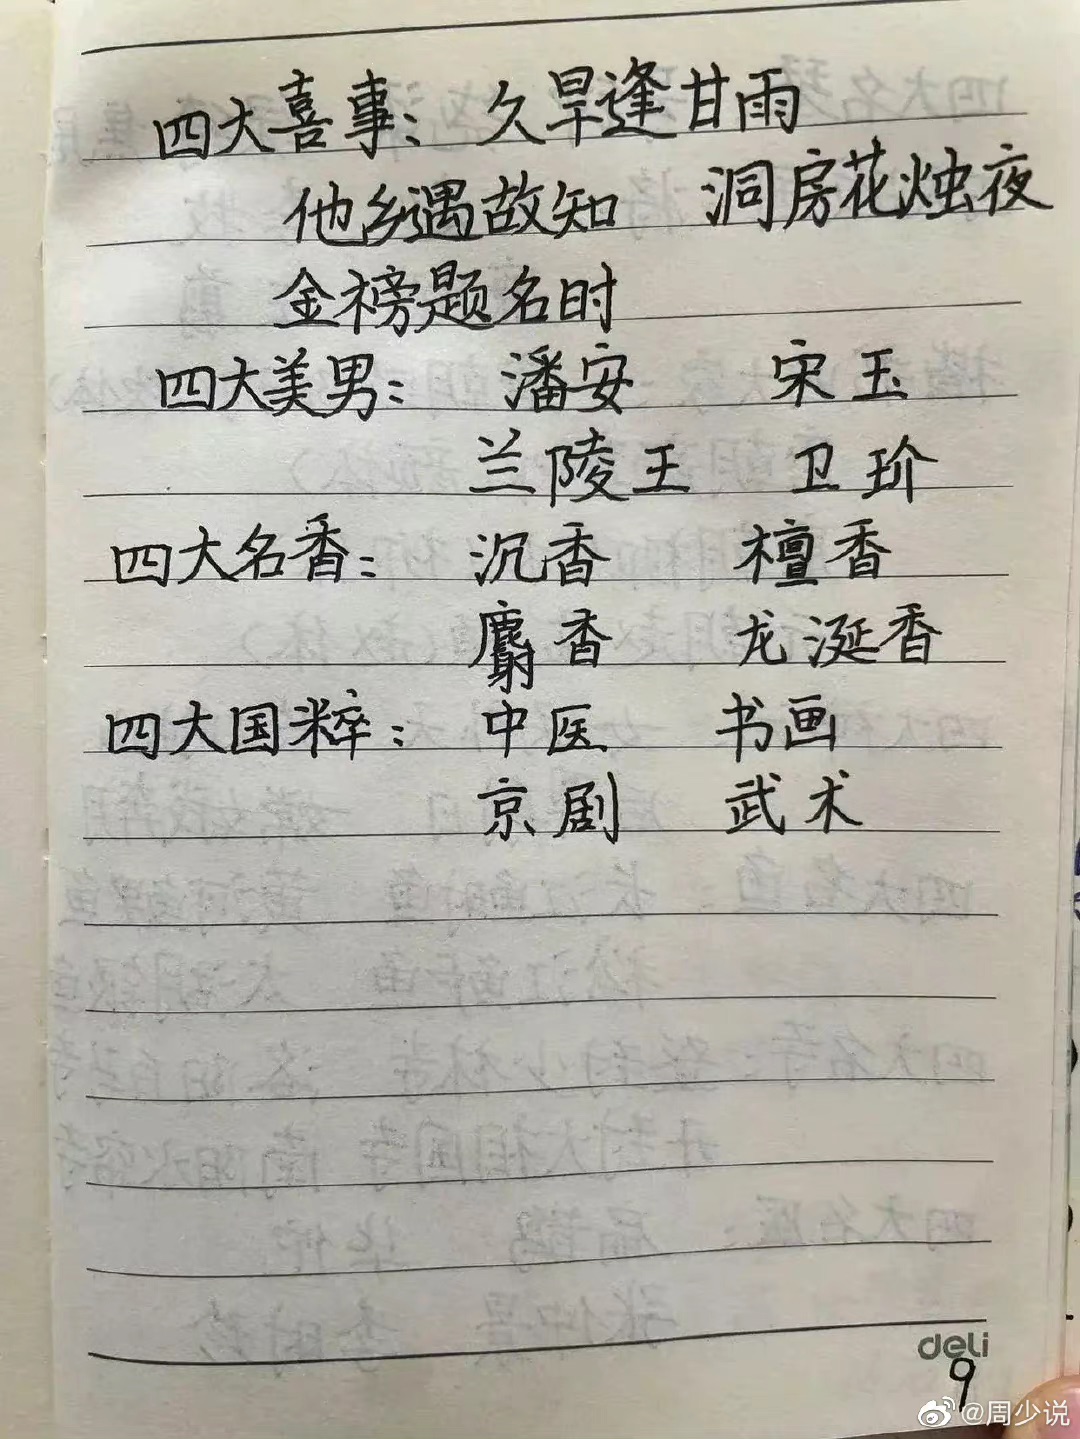 四大喜事：久旱逢甘雨
他乡遇故知 洞房花烛夜
金榜题名时
四大美男：潘安 宋玉
兰陵王 卫玠
四大名香：沉香 檀香
麝香 龙涎香
四大国粹：中医 书画
京剧 武术
deli
9
@周少说